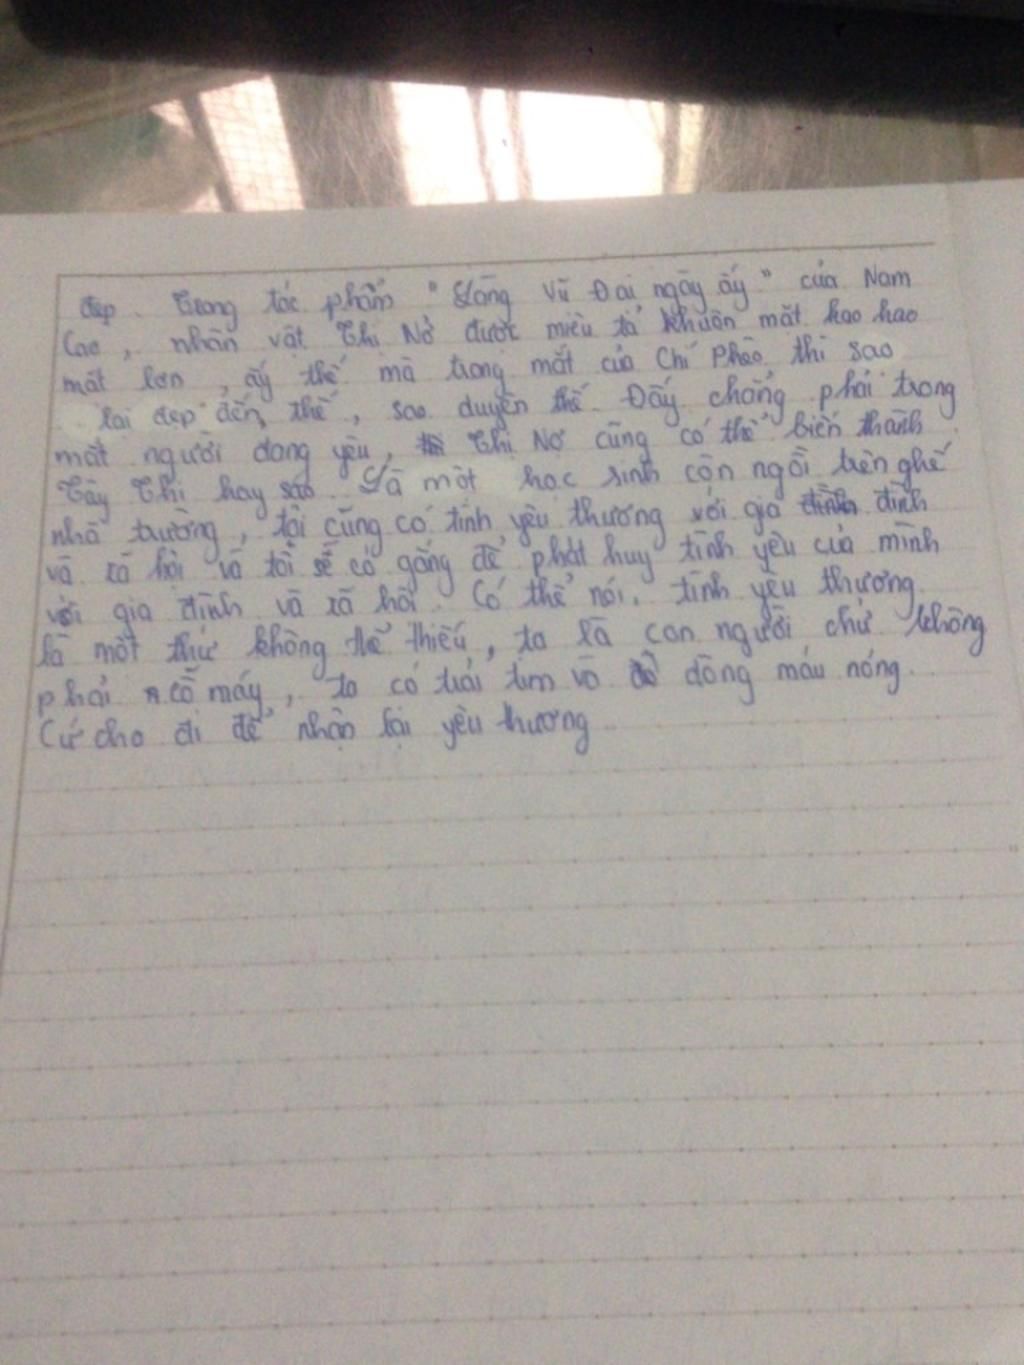 đẹp. Trong tác phẩm "Làng Vũ Đại ngày ấy" của Nam
Cao, nhân vật Thị Nở được miêu tả khuôn mặt hao hao
mặt lợn, ấy thế mà trong mắt của Chí Phèo thì sao
lại đẹp đến thế, sao duyên thế. Đấy chẳng phải trong
mắt người đang yêu, Thị Nở cũng có thể biến thành
Tây Thi hay sao. Là một học sinh còn ngồi trên ghế
nhà trường, tôi cũng có tình yêu thương với gia đình
và xã hội và tôi sẽ cố gắng để phát huy tình yêu của mình
với gia đình và xã hội. Có thể nói, tình yêu thương
là một thứ không thể thiếu, ta là con người chứ không
phải cỗ máy, ta có trái tim và dòng máu nóng.
Cứ cho đi để nhận lại yêu thương